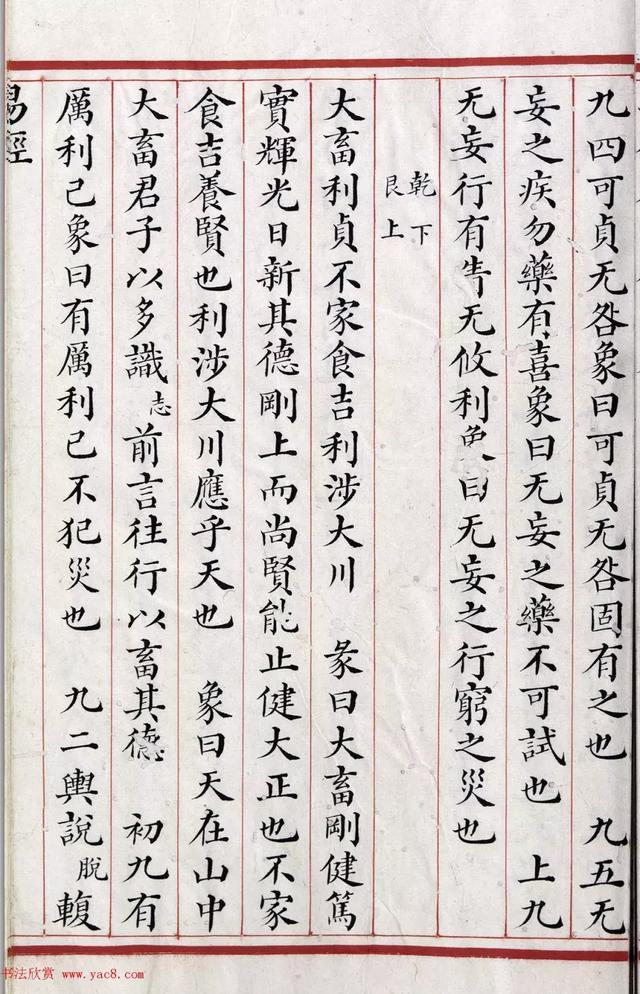 九四可貞无咎象曰可貞无咎固有之也 九五无
妄之疾勿藥有喜象曰无妄之藥不可試也 上九
无妄行有眚无攸利象曰无妄之行窮之災也
乾下
艮上
大畜利貞不家食吉利涉大川 彖曰大畜剛健篤
實輝光日新其德剛上而尚賢能止健大正也不家
食吉養賢也利涉大川應乎天也 象曰天在山中
大畜君子以多識志前言往行以畜其德 初九有
厲利己象曰有厲利己不犯災也 九二輿說脫輹
易經
书法欣赏 www.yac8.com